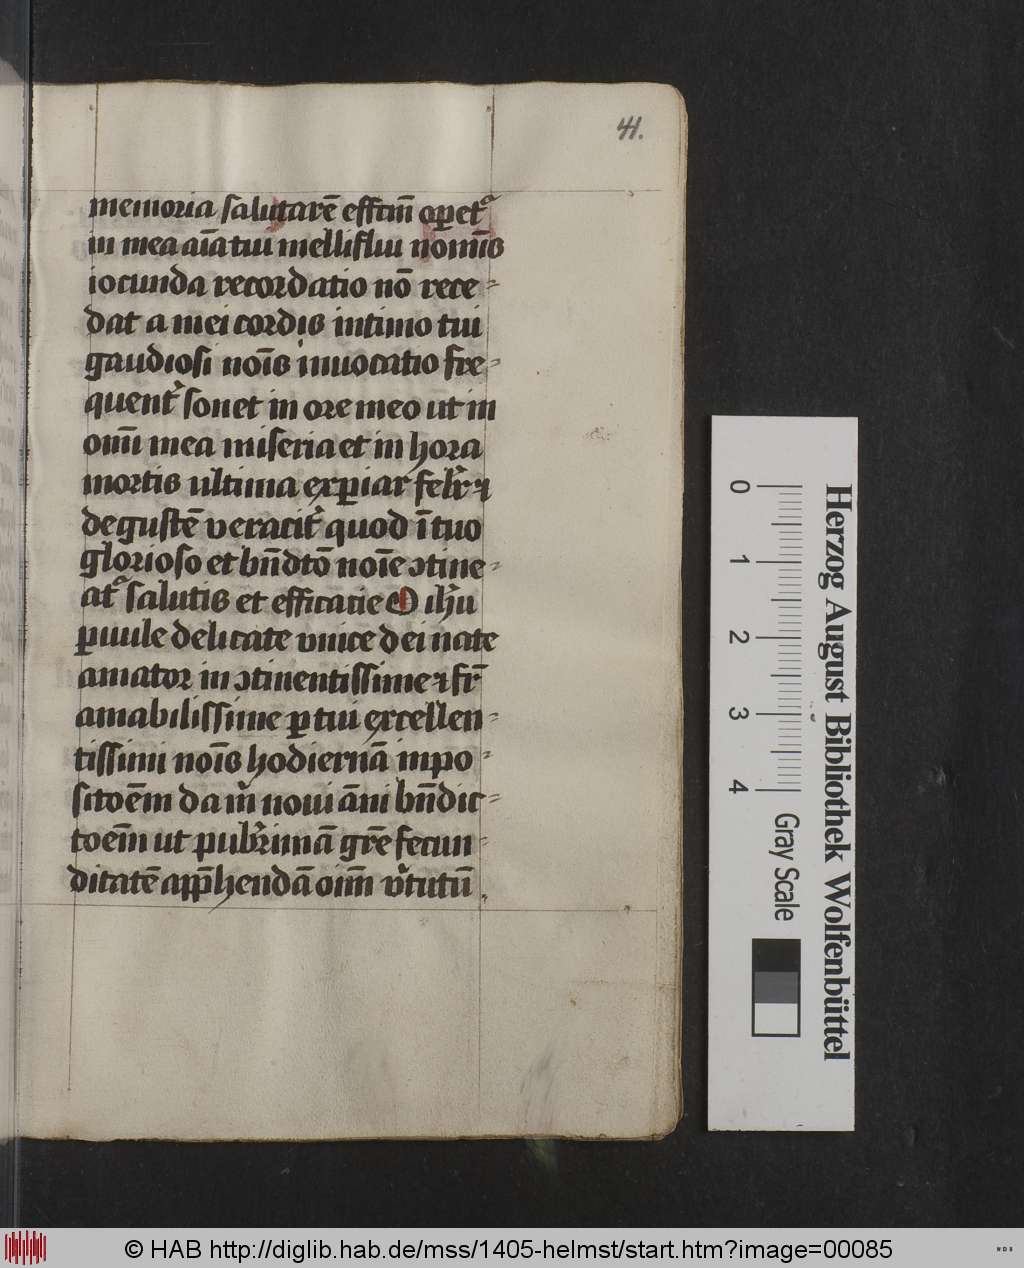 41.
memoria salutarē effcm̄ opet᷑
in mea aīa tui melliflui nomīs
iocunda recordatio nō rece-
dat a mei cordis intimo tui
gaudiosi noīs inuocatio fre-
quent᷑ sonet in ore meo ut in
om̄i mea miseria et in hora
mortis ultima exꝑiar felr᷑ ⁊
degustē veracit᷑ quod ī tuo
glorioso et bn̄dc̄o noīe ↄtine-
at᷑ salutis et efficacie O ih̄u
ꝑuule delicate vnice dei nate
amator in ↄtinentissime ⁊ fr̄
amabilissime ꝑ tui excellen-
tissimi noīs hodiernā inpo-
sitoēm da m̄ noui āni bn̄dic-
toēm ut pulcr᷑imā gr̄e fecun-
ditatē app̄hendā oīm v᷑tutū
0 1 2 3 4
Herzog August Bibliothek Wolfenbüttel
Gray Scale
© HAB http://diglib.hab.de/mss/1405-helmst/start.htm?image=00085